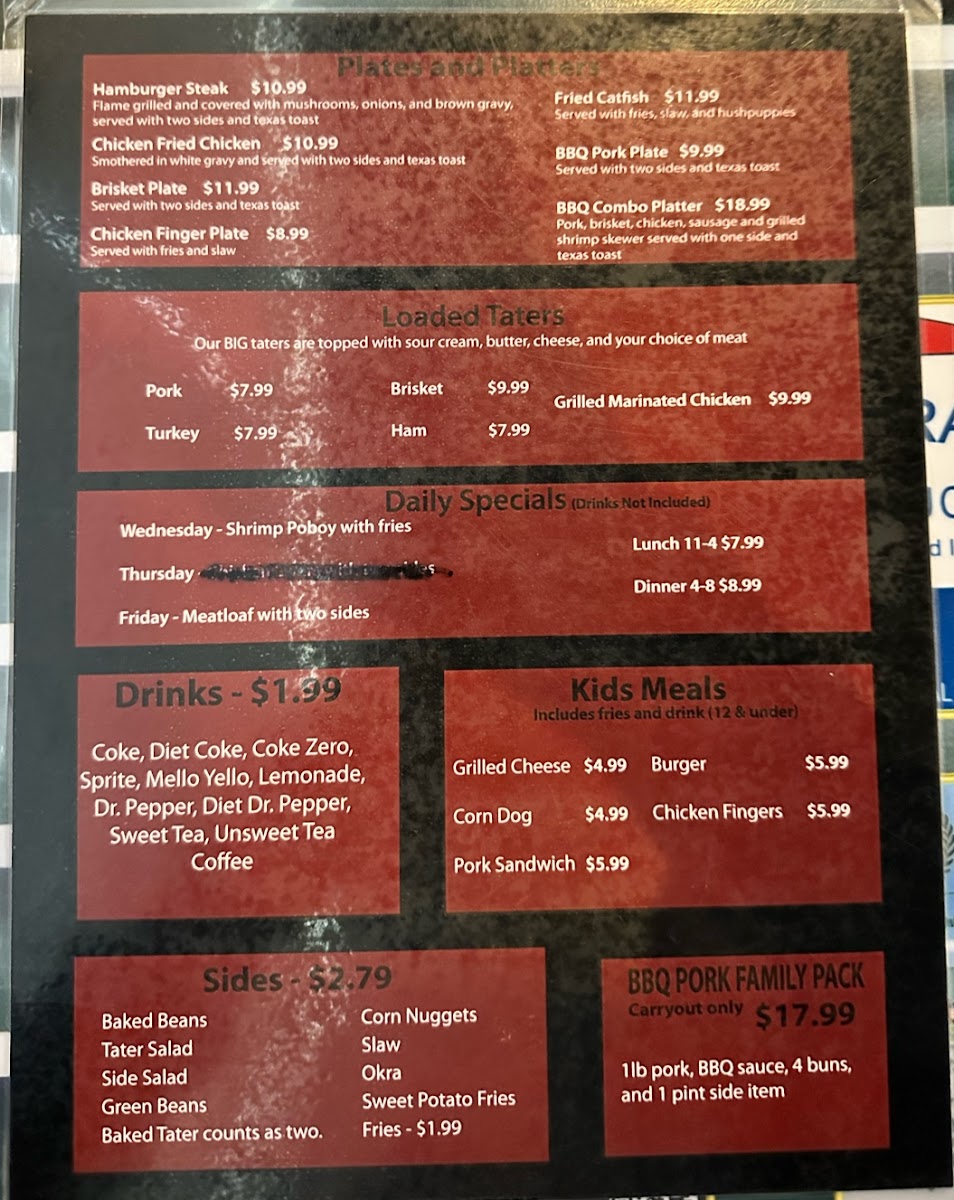 Plates and Platters
Hamburger Steak $10.99
Flame grilled and covered with mushrooms, onions, and brown gravy,
served with two sides and texas toast
Chicken Fried Chicken $10.99
Smothered in white gravy and served with two sides and texas toast
Brisket Plate $11.99
Served with two sides and texas toast
Chicken Finger Plate $8.99
Served with fries and slaw
Fried Catfish $11.99
Served with fries, slaw, and hushpuppies
BBQ Pork Plate $9.99
Served with two sides and texas toast
BBQ Combo Platter $18.99
Pork, brisket, chicken, sausage and grilled
shrimp skewer served with one side and
texas toast
Loaded Taters
Our BIG taters are topped with sour cream, butter, cheese, and your choice of meat
Pork $7.99
Brisket $9.99
Grilled Marinated Chicken $9.99
Turkey $7.99
Ham $7.99
Daily Specials (Drinks Not Included)
Wednesday - Shrimp Poboy with fries
Thursday -
Friday - Meatloaf with two sides
Lunch 11-4 $7.99
Dinner 4-8 $8.99
Drinks - $1.99
Coke, Diet Coke, Coke Zero,
Sprite, Mello Yello, Lemonade,
Dr. Pepper, Diet Dr. Pepper,
Sweet Tea, Unsweet Tea
Coffee
Kids Meals
Includes fries and drink (12 & under)
Grilled Cheese $4.99 Burger $5.99
Corn Dog $4.99 Chicken Fingers $5.99
Pork Sandwich $5.99
Sides - $2.79
Baked Beans
Tater Salad
Side Salad
Green Beans
Baked Tater counts as two.
Corn Nuggets
Slaw
Okra
Sweet Potato Fries
Fries - $1.99
BBQ PORK FAMILY PACK
Carryout only $17.99
1lb pork, BBQ sauce, 4 buns,
and 1 pint side item